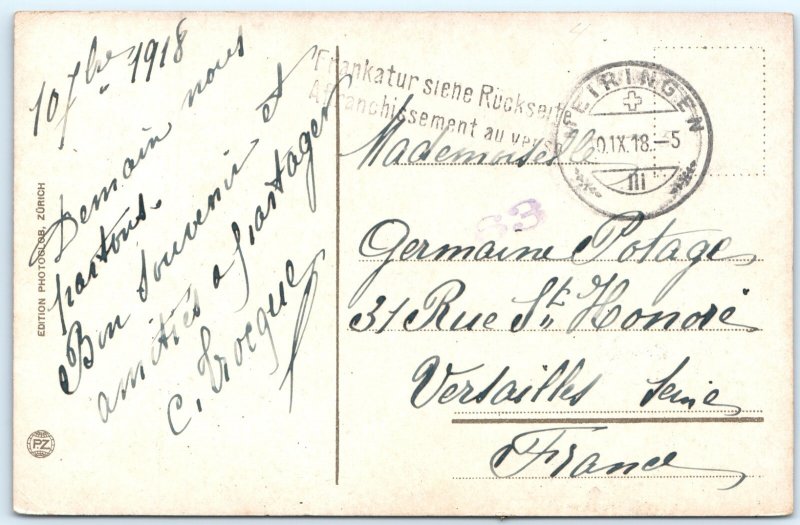 10 7bre 1918
Demain nous
partons.
Bon souvenir et
amitiés à partager
C. Trocque
EDITION PHOTOGLOB, ZÜRICH
PZ
Frankatur siehe Rückseite
Affranchissement au verso
MEIRINGEN
10.IX.18.–5
63
Mademoiselle
Germaine Potage
31 Rue St. Honoré
Versailles Seine
France